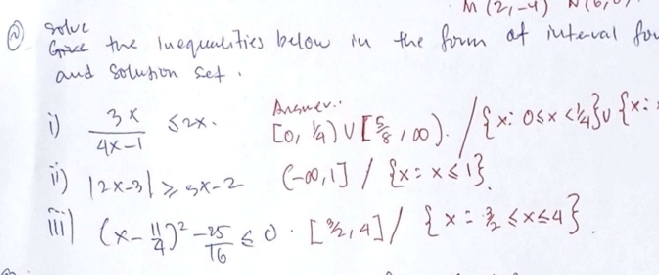 M (2,-4) N (6,0)
② solve
Give the Inequalities below in the form of interval for
and Solution Set.
Answer:
i) 3x/(4x-1) ≤ 2x. [0, 1/4) ∪ [5/8, ∞). / {x: 0≤x<1/4} ∪ {x:
ii) |2x-3| ≥ 5x-2 (-∞,1] / {x: x≤1}.
iii) (x-11/4)² - 25/16 ≤ 0. [3/2, 4] / {x: 3/2 ≤x≤4}.